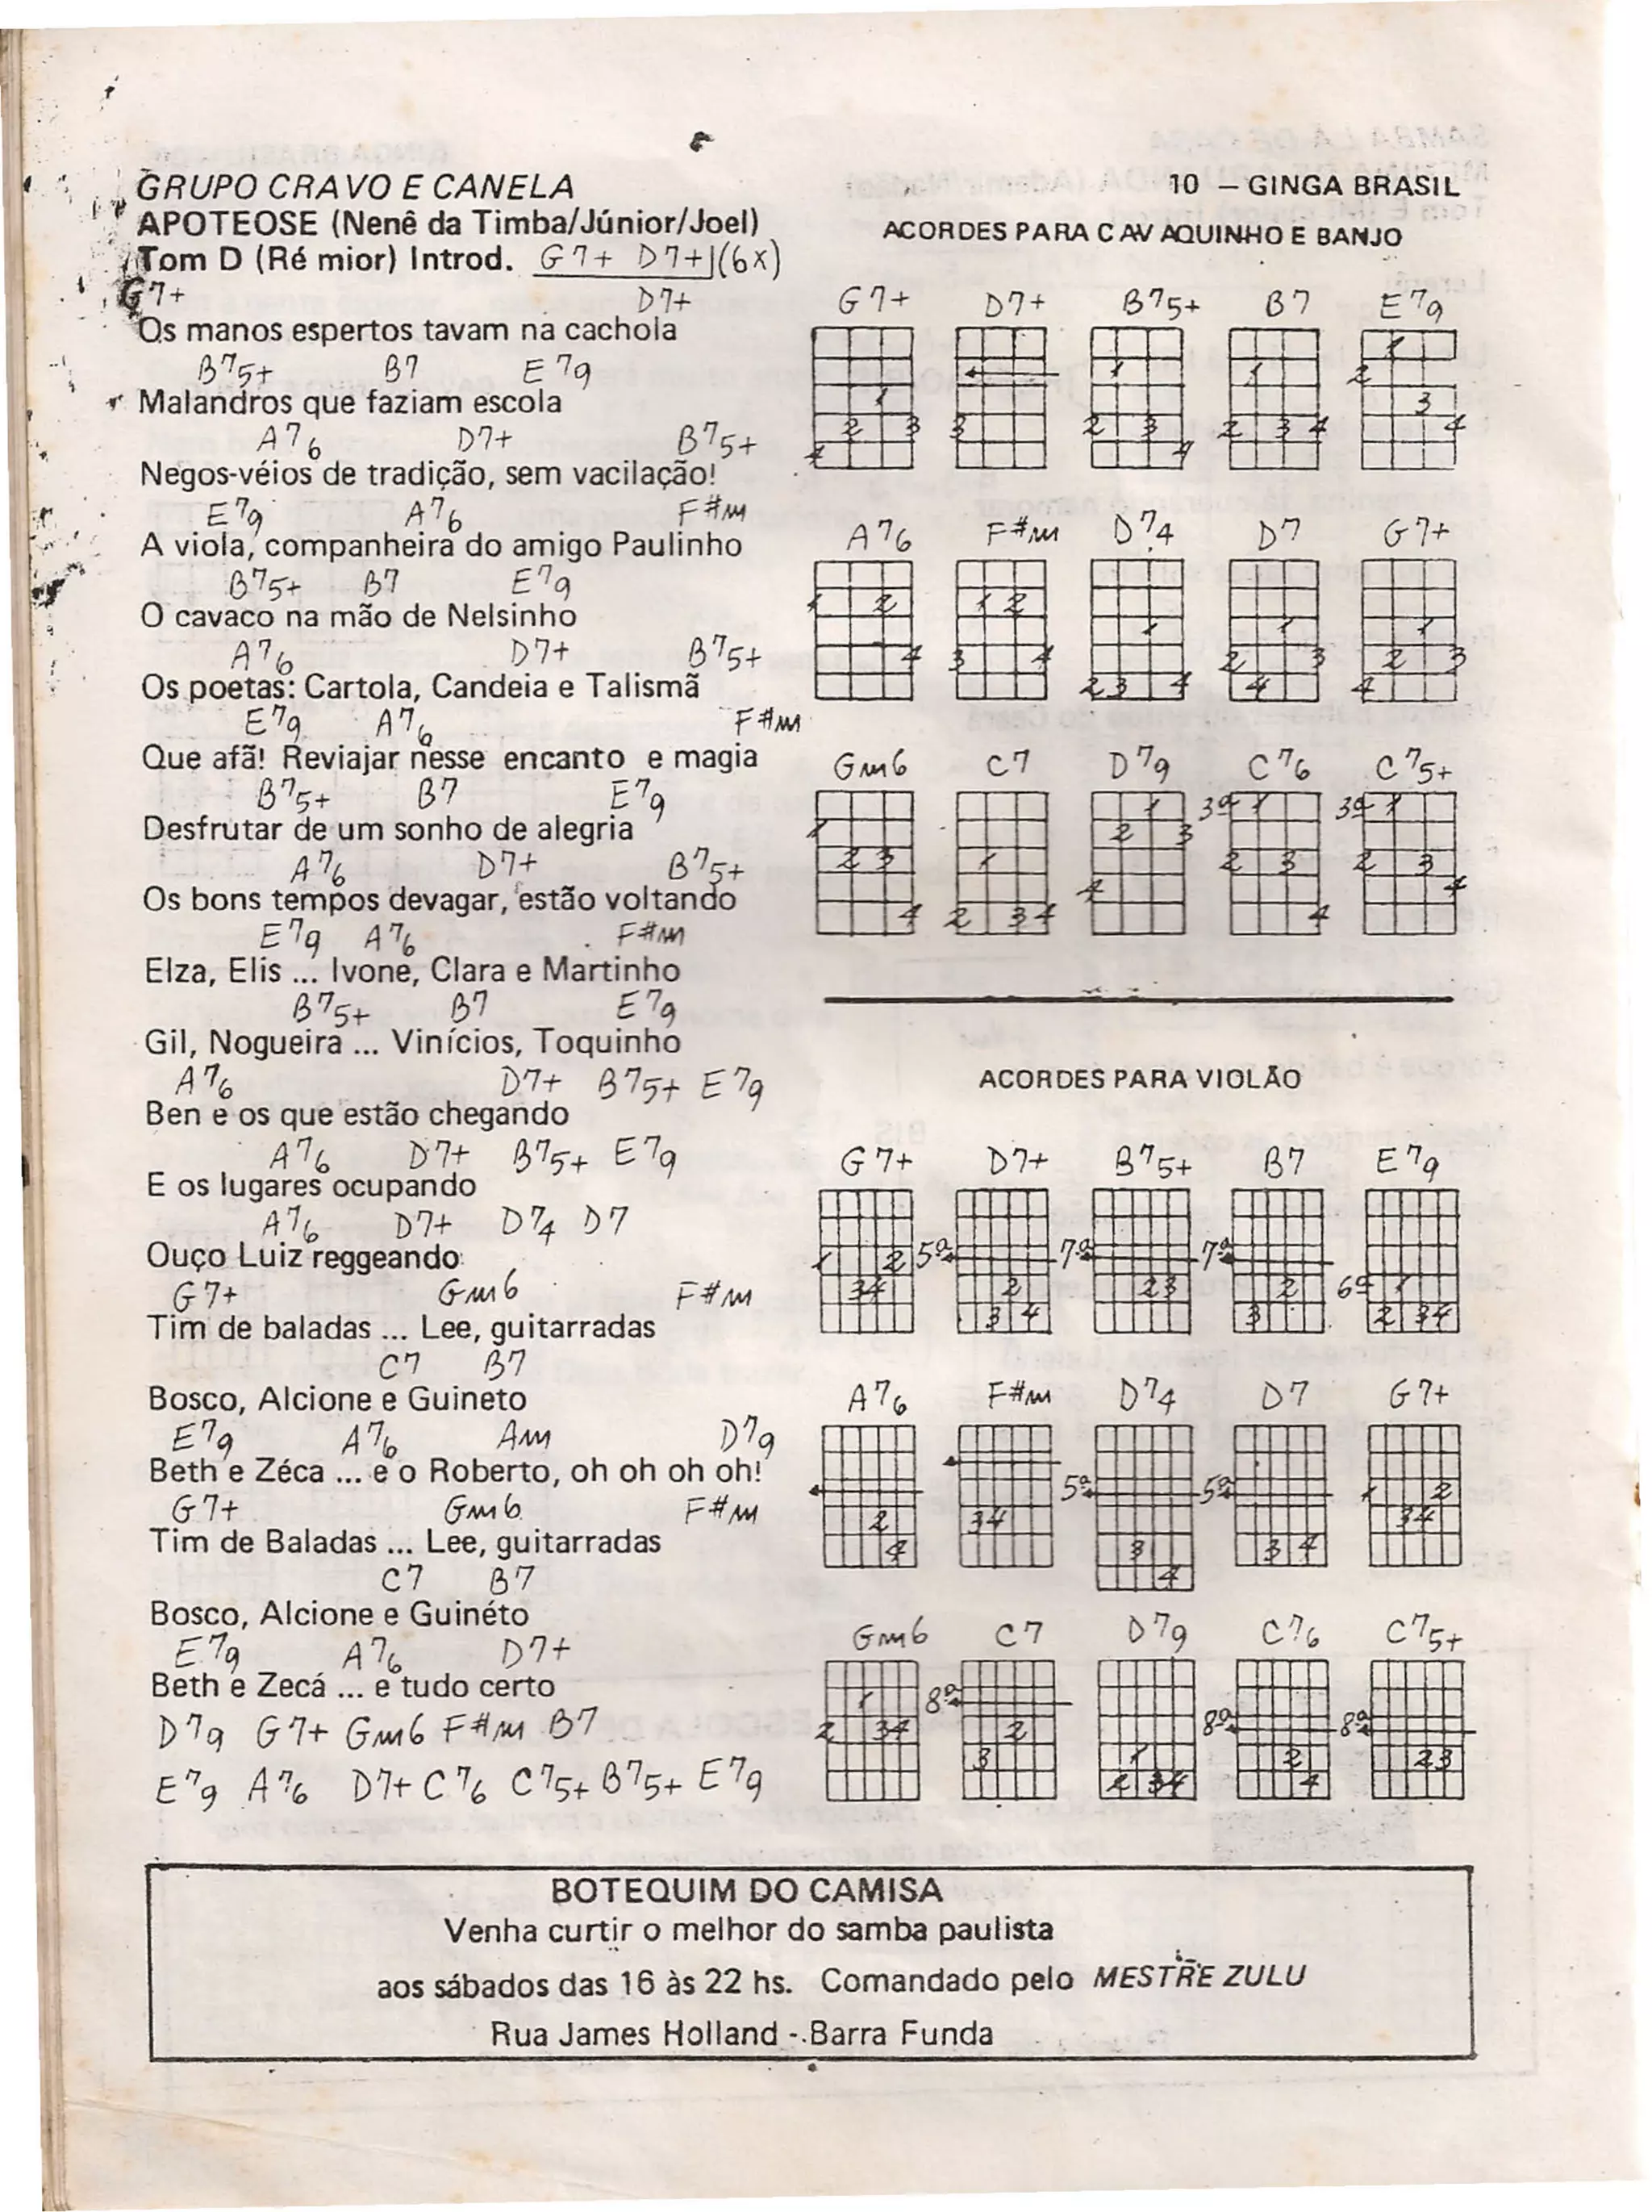 GRUPO CRAVO E CANELA
APOTEOSE (Nenê da Timba/Júnior/Joel)
Tom D (Ré mior) Introd. G7+ D7+ (6x)
G7+ D7+
Os manos espertos tavam na cachola
B75+ B7 E79
Malandros que faziam escola
A76 D7+ B75+
Negos-véios de tradição, sem vacilação!
E79 A76 F#m
A viola, companheira do amigo Paulinho
B75+ B7 E79
O cavaco na mão de Nelsinho
A76 D7+ B75+
Os poetas: Cartola, Candeia e Talismã
E79 A76 F#m
Que afã! Reviajar nesse encanto e magia
B75+ B7 E79
Desfrutar de um sonho de alegria
A76 D7+ B75+
Os bons tempos devagar, estão voltando
E79 A76 F#m
Elza, Elis ... Ivone, Clara e Martinho
B75+ B7 E79
Gil, Nogueira ... Vinícios, Toquinho
A76 D7+ B75+ E79
Ben e os que estão chegando
A76 D7+ B75+ E79
E os lugares ocupando
A76 D7+ D74 D7
Ouço Luiz reggeando
G7+ Gm6 F#m
Tim de baladas ... Lee, guitarradas
C7 B7
Bosco, Alcione e Guineto
E79 A76 Am D79
Beth e Zéca ... e o Roberto, oh oh oh oh!
G7+ Gm6 F#m
Tim de Baladas ... Lee, guitarradas
C7 B7
Bosco, Alcione e Guinéto
E79 A76 D7+
Beth e Zecá ... e tudo certo
D79 G7+ Gm6 F#m B7
E79 A76 D7+ C76 C75+ B75+ E79
10 – GINGA BRASIL
ACORDES PARA CAVAQUINHO E BANJO
G7+ D7+ B75+ B7 E79
1 2 3 4
3
1 2 3 4
1 2 3 4
1 2 3 4
A76 F#m D74 D7 G7+
1 2 4
1 2 3 4
1 2 3 4
1 2 3 4
1 2 3 4
Gm6 C7 D79 C76 C75+
1 2 3 4
1 2 3 4
1 2 3 4
3ª 1 2 3 4
3ª 1 2 3 4
ACORDES PARA VIOLÃO
G7+ D7+ B75+ B7 E79
1 2 3 4
5ª 2 3 4
7ª 2 3
7ª 2 3
6ª 1 2 3 4
A76 F#m D74 D7 G7+
2 4
3 4
5ª 3 4
5ª 3 4
1 2 3 4
Gm6 C7 D79 C76 C75+
1 2 3 4
8ª 2 3
1 2 3 4
8ª 2 4
8ª 2 3
BOTEQUIM DO CAMISA
Venha curtir o melhor do samba paulista
aos sábados das 16 às 22 hs. Comandado pelo MESTRE ZULU
Rua James Holland - Barra Funda